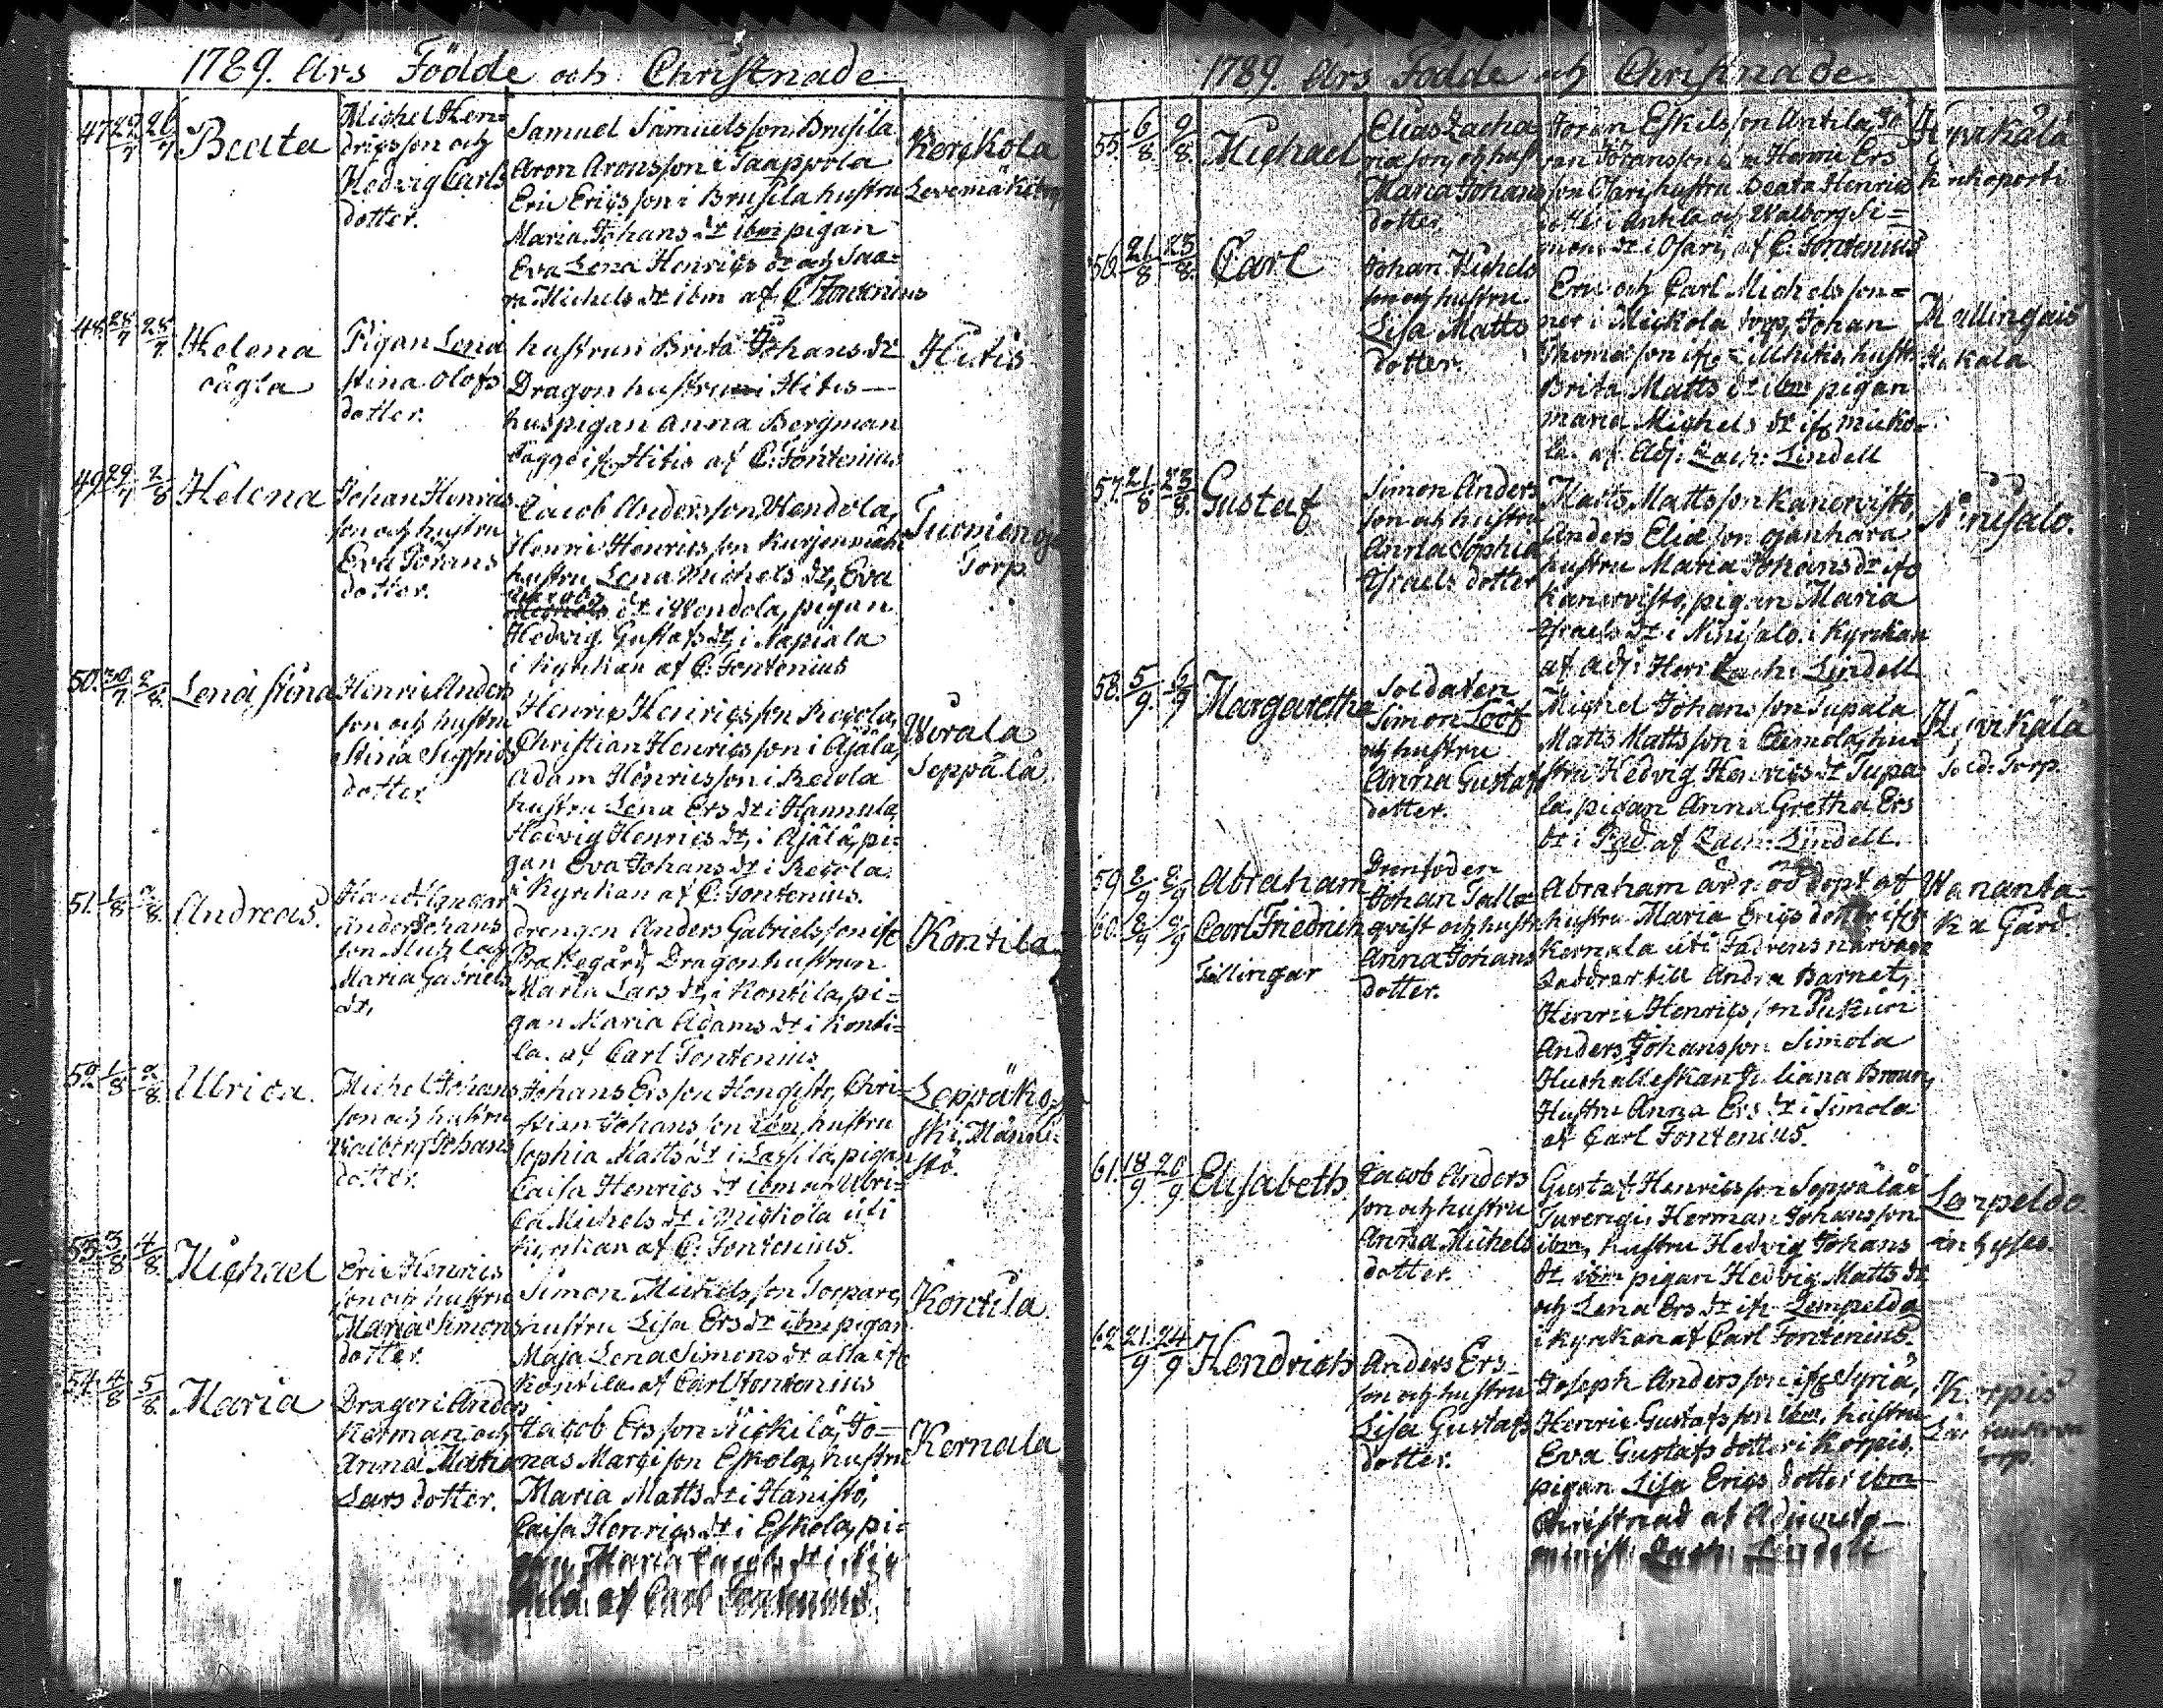 1789. Års Födde och Christnade
47 29/7 26/7 Beata
Michel Hen=
drigsson och
Hedvig Carls
dotter.
Samuel Samuelsson Brusila
Aron Aronsson i Saappola
Eric Erigsson i Brusila hustru
Maria Johans dr ibm pigan
Eva Lena Henrigs dr och Saa=
ra Michels dr ibm af C Fontenius
Kerckola
48. 28/7 28/7. Helena
oägta
Pigan Lena
Stina Olofs
dotter.
hustrun Brita Johans dr
Dragon hustru i Hitis
huspigan Anna Bergman
bägge ifr. Hitis af C: Fontenius
Hitis
49. 29/7 2/8 Helena
Johan Henrics
son och hustru
Eva Johans
dotter.
Jacob Andersson Wendola,
Henric Henricsson Kurjenmäki
hustru Lena Michels dr, Eva
Jacobs dr i Wendola, pigan
Hedvig Gustafs dr, i Napiala
i Kyrckan af C: Fontenius
Tuomenoja
Torp.
50. 30/7 2/8. Lena Stina
Henric Anders
son och hustru
Stina Sigfrids
dotter
Henric Henrigsson Recola,
Christian Henricsson i Äjälä,
Adam Henricsson i Recola
hustru Lena Ers dr i Hannula,
Hedvig Henrics dr, i Äjälä, pi=
gan Eva Johans dr i Recola.
i Kyrckan af C: Fontenius.
Wirala
Seppälä
51. 1/8 2/8. Andreas.
Anders Johans
son
Maria Gabriels
dr,
drengen Anders Gabrielsson ifr
Prästegård, Dragon hustrun
Maria Lars dr, i Kontila, pi=
gan Maria Adams dr i Konti=
la. af Carl Fontenius
Kontila
52. 1/8 2/8. Ulrica.
Michel Johans
son och hustru
Walborg Johans
dotter.
Johans Ersson Hongisto, Chri=
stian Johansson ibm, hustru
Sophia Matts dr i Lassila, pigan
Caisa Henrigs dr ibm och Ulri=
ca Michels dr i Mickola uti
Kyrckan af C: Fontenius.
Leppäko=
ski, Männi=
stö.
53. 3/8 4/8. Michael
Eric Henrics
son och hustru
Maria Simons
dotter.
Simon Michelsson Torpare,
hustru Lisa Ers dr ibm pigan
Maja Lena Simons dr alla ifr
Kontila af Carl Fontenius
Kontila.
54. 4/8 5/8. Maria
Dragon Anders
Kerman och
Anna
Lars dotter.
Jacob Ersson Nickilä, Jo=
nas Margisson Eskola, hustru
Maria Matts dr i Hänistö,
Caisa Henrics dr i Eskola, pi=
gan Maria Jacobs dr i Nic
kilä af Carl Fontenius.
Kernala
1789. Års Födde och Christnade.
55. 6/8. 9/8. Michael
Elias Zacha
riæson, och hust
Maria Johans
dotter.
Jöran Eskilsson Antila, Jö
ran Jöransson Henric Ers
son Ojari, hustru Beata Henrics
dotter i Antila och Walborg Si=
mons dr i Ojari, af C. Fontenius
Hyvikälä
56. 21/8 23/8. Carl
Johan Michels
son och hustru
Lisa Matts
dotter.
Eric och Carl Michelssön=
ner i Mickola torp, Johan
Thomæson ifr hustr.
Brita Matts dr ibm pigan
Maria Michels dr ifr Micko=
la. af Adj: Zach: Lindell
Mallingais
Hakala
57. 21/8 23/8. Gustaf
Simon Anders
son och hustru
Anna Sophia
Israels dotter
Matts Mattsson Kanervisto,
Anders Eliæson Ojanhara
hustru Maria Johans dr ifr
Kanervisto, pigan Maria
Israels dr i Nirisalo. i Kyrckan
af Adj: Herr Zach: Lindell
58. 5/9. 6/9 Margaretha
Soldaten
Simon Lööf
och hustru
Anna Gustafs
dotter.
Michel Johansson Tupala
Matts Mattsson i Eemola, hu=
stru Hedvig Henrics dr Tupa
la, pigan Anna Gretha Ers
dr i af Zach: Lindell.
Hyvikälä
Sold: Torp.
59 8/9 8/9 Abraham
60. 8/9 8/9 Carl Friedrich
Tillingar
Johan Talle
qvist och hustr
Anna Johans
dotter.
Abraham är nöddöpt af
hustru Maria Erigs dotter ifr
Kernala uti Fadrens närvaro
Faddrar till Andra Barnet,
Henric Henrigsson Pukuri
Anders Johansson Simola
Hushålleskan Juliana Broun,
Hustru Anna Ers dr i Simola
af Carl Fontenius.
Wananta=
ka Gård.
61. 18/9 20/9 Elisabeth
Jacob Anders
son och hustru
Anna Michels
dotter.
Gustaf Henricsson Seppälä
Turengi, Herman Johansson
ibm, hustru Hedvig Johans
dr ibm pigan Hedvig Matts dr
och Lena Ers dr ifr Lempelda
i Kyrckan af Carl Fontenius.
62 21/9 24/9 Hendrich
Anders Ers=
son och hustru
Lisa Gustafs
dotter.
Joseph Andersson ifr Syriä,
Henric Gustafsson ibm, hustru
Eva Gustafs dotter i Korpis,
pigan Lisa Erigs dotter ibm
Christnad af Adjuncts
minist Zach: Lindell
Korpis